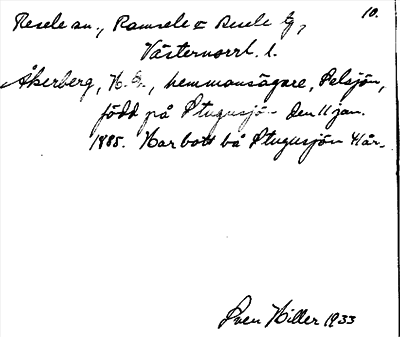 Resele sn., Ramsele o Resele tg, 10.
Västernorrl. l.
Åkerberg, N. G., hemmansägare, Selsjön,
född på Stugusjö- den 11 jan.
1885. Har bott på Stugusjön 41 år.
Sven Hiller 1933